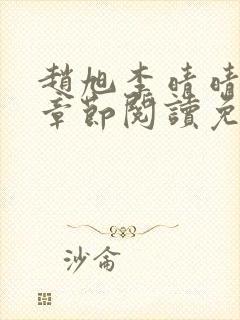 趙旭李晴晴
章節閱讀免
沙侖